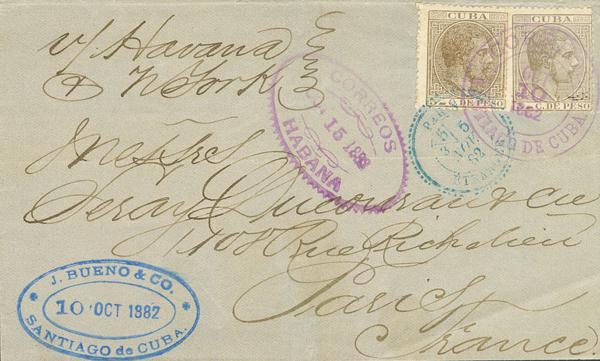 v/ Havana
& N York
CUBA
CUBA
C. DE PESO
C. DE PESO
CORREOS
15 1882
HABANA
10
1882
DE CUBA
PAR
5
82
Messrs
& Cie
108 Rue Richelieu
Paris
France
J. BUENO & CO.
10 OCT 1882
SANTIAGO de CUBA.